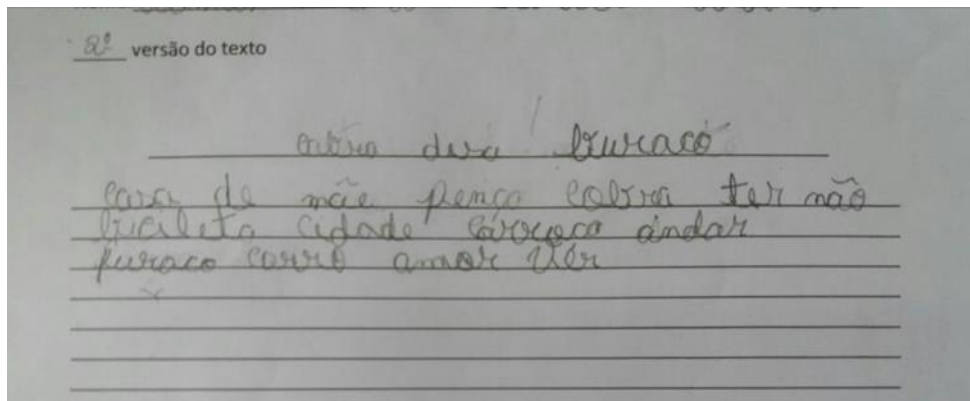 2ª versão do texto
dura buraco
casa de mãe pença cobra ter não
bicileta cidade carroça andar
puraco carro amor ver